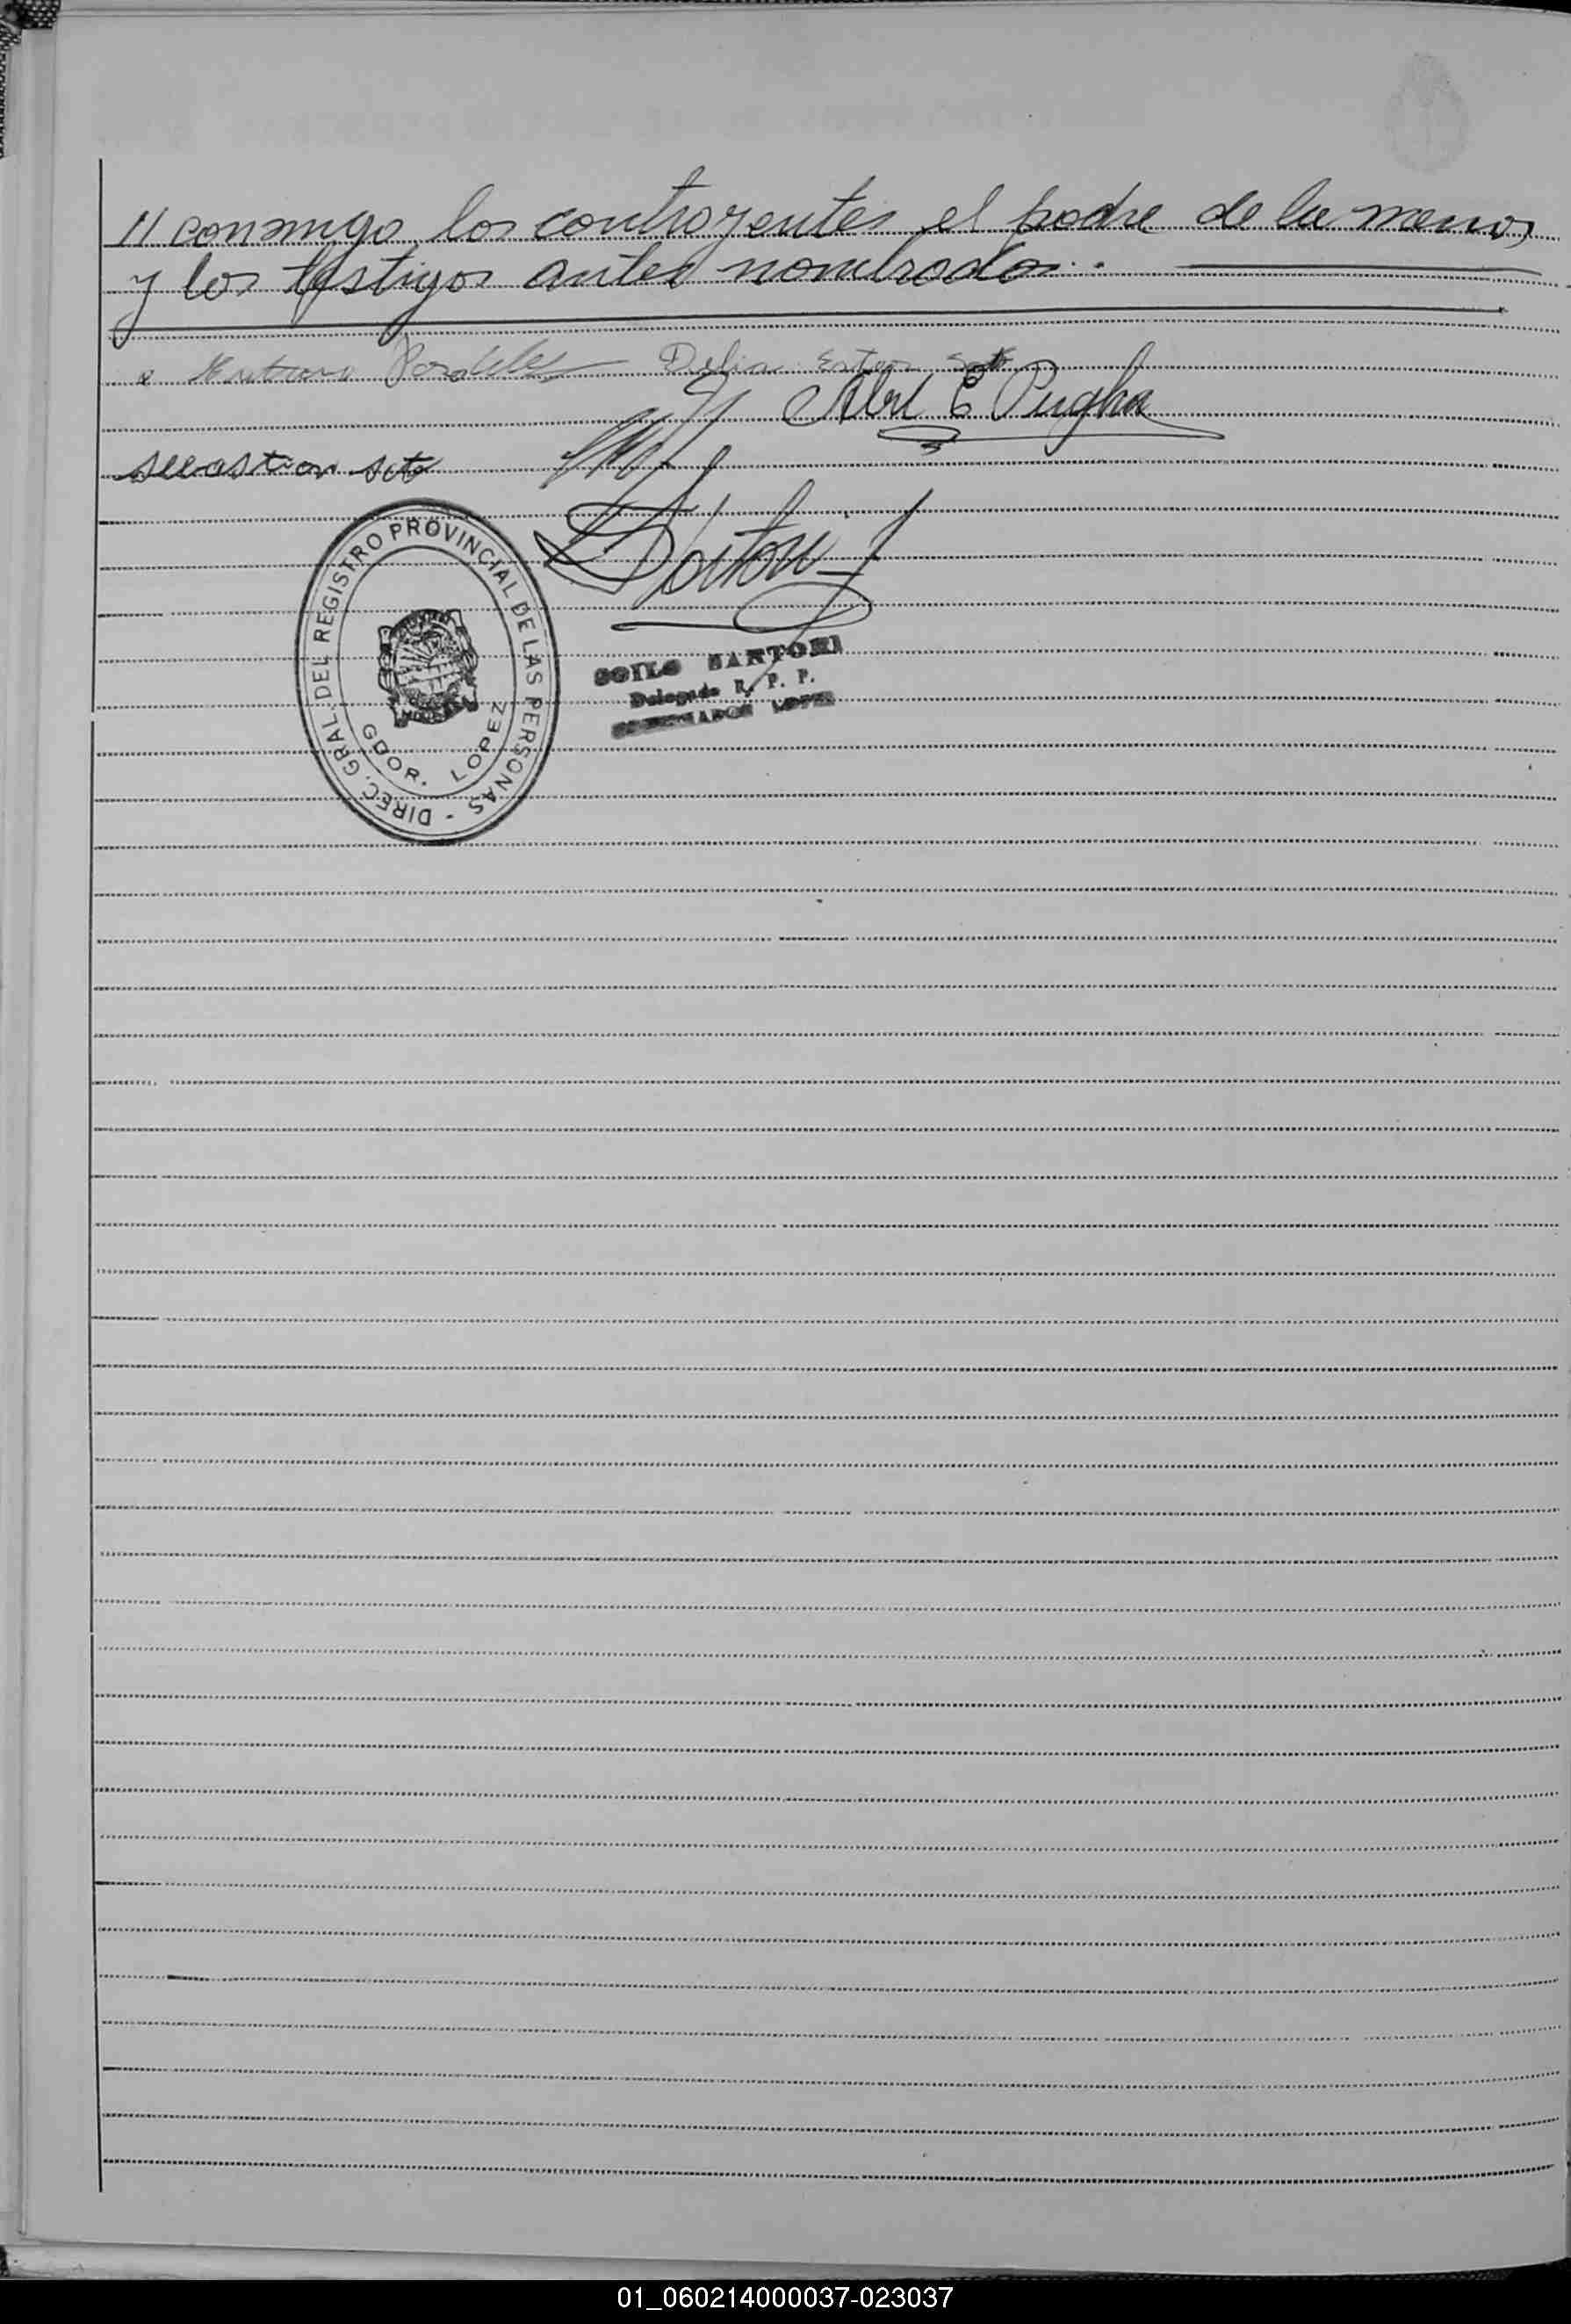 // conmigo los contrayentes el padre de la menor
y los testigos antes nombrados.
Delia Ester Soto
Abel E Pugha
sebastian soto
DIREC. GRAL. DEL REGISTRO PROVINCIAL DE LAS PERSONAS -
GDOR. LOPEZ
SARTORI
Delegado R. P. P.
01_060214000037-023037